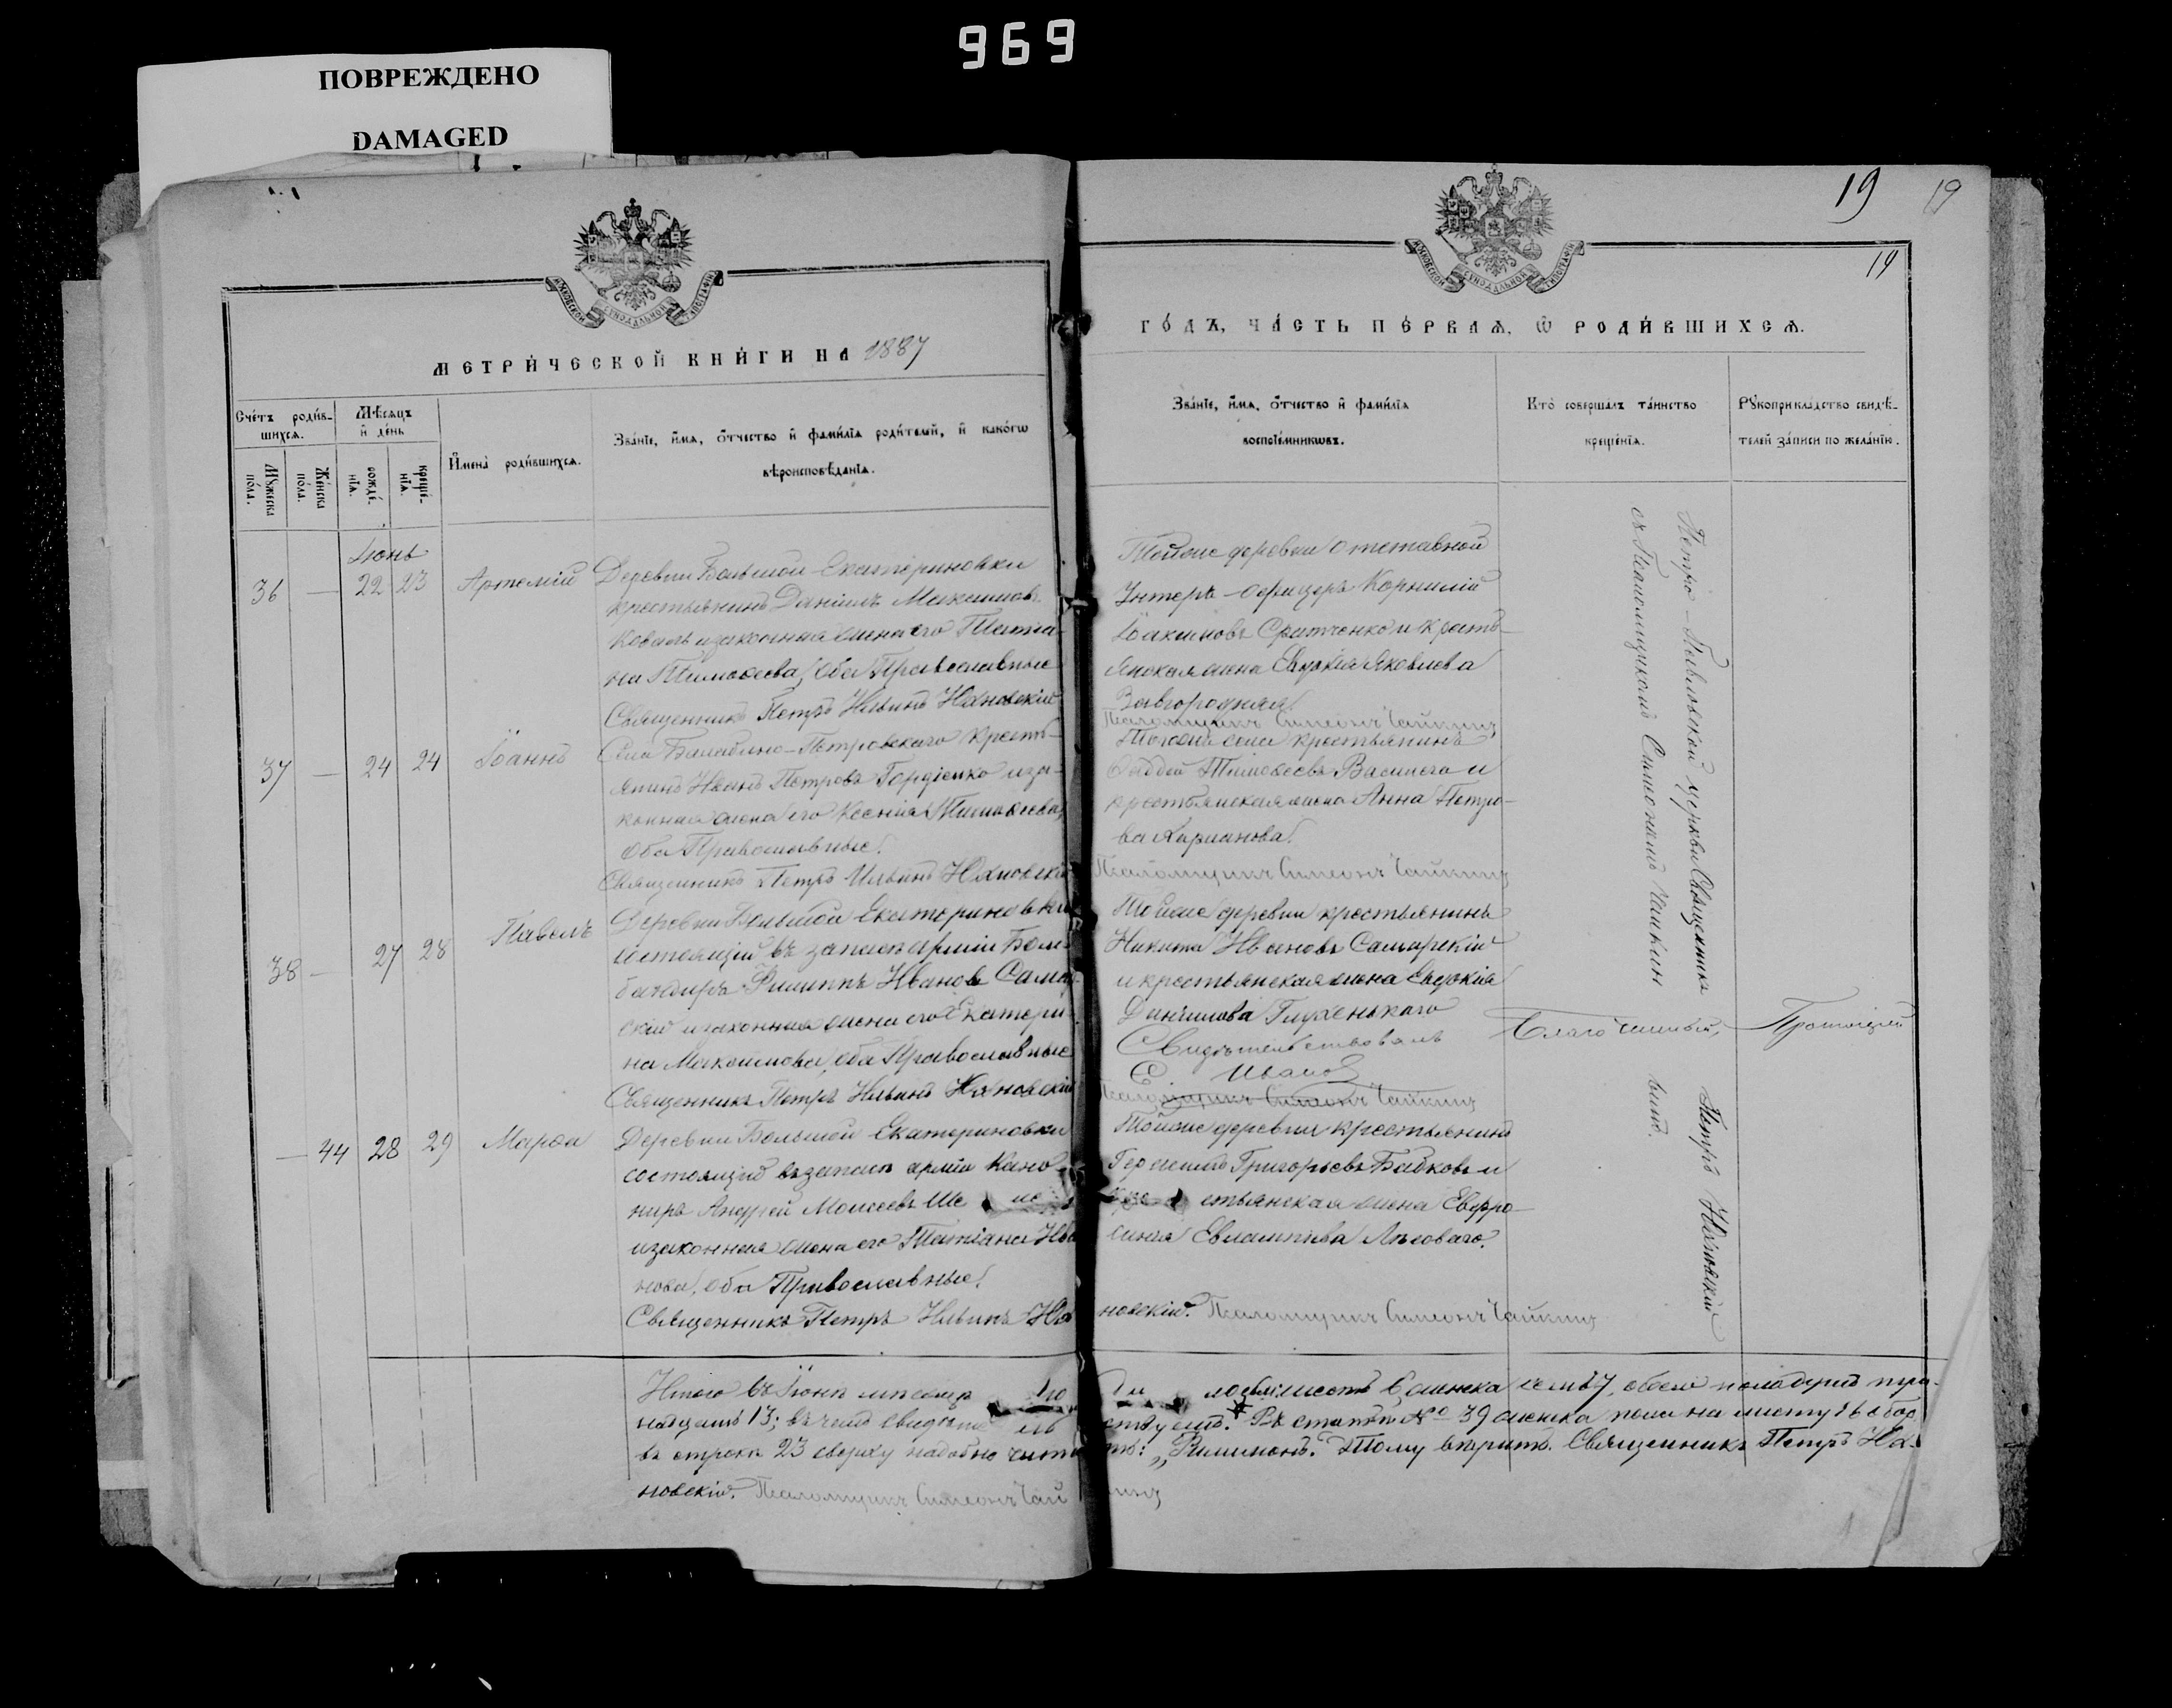 969
ПОВРЕЖДЕНО
DAMAGED
19 19
19
МЕТРИ́ЧЕСКОЙ КНИ́ГИ НА 1887
ГО́ДЪ, ЧА́СТЬ ПЕ́РВАѦ, Ѿ РОДИ́ВШИХСѦ.
Сче́тъ роди́в-
шихсѧ.
Мꙋжеска по́ла.
Же́нска по́ла.
Мѣ́сѧцъ и҆ де́нь
рожде́-нїѧ.
креще́-нїѧ.
И҆мена̀ роди́вшихсѧ.
Зва́нїе, и҆́мѧ, ѻ҆́тчество и҆ фами́лїѧ роди́телей, и҆ како́гѡ
вѣроисповѣ́данїѧ.
Зва́нїе, и҆́мѧ, ѻ҆́тчество и҆ фами́лїѧ
воспрїе́мникѡвъ.
Кто̀ соверша́лъ та́инство
креще́нїѧ.
Рꙋкоприкла́дство свидѣ́-
телей за́писи по жела́нїю.
Іюнь
36 — 22 23 Артемій
Деревни Большой-Екатериновки
крестьянинъ Даніилъ Максимовъ
Коваль и законная жена его Татіа-
на Тимоѳеева, оба Православные
Священникъ Петръ Ильинъ Яхновскій
Тойже деревни отставной
Унтеръ-офицеръ Корнилій
Іоакимовъ и кресть-
янская жена Евдокія Яковлева
Завгородняя.
Псаломщикъ Симеонъ Чайкинъ
37 — 24 24 Іоаннъ
Села Балабино-Петровскаго кресть-
янинъ Иванъ Петровъ Гордіенко и за-
конная жена его Ксенія Тимоѳеева,
оба Православные.
Священникъ Петръ Ильинъ Яхновскій
Тогоже села крестьянинъ
Ѳаддей Тимоѳеевъ и
крестьянская жена Анна Петро-
ва
Псаломщикъ Симеонъ Чайкинъ
38 — 27 28 Павелъ
Деревни Большой Екатериновки
состоящій въ запасѣ арміи Бом-
бардиръ Филиппъ Ивановъ Самар-
скій и законная жена его Екатери-
на Максимова, оба Православные
Священникъ Петръ Ильинъ Яхновскій
Тойже деревни крестьянинъ
Никита Ивановъ Самарскій
и крестьянская жена Евдокія
Данилова Глухенькаго
Свидѣтельствовалъ Благочинный, Протоіерей
Е. Ивановъ
Псаломщикъ Симеонъ Чайкинъ
— 44 28 29 Марѳа
Деревни Большой Екатериновки
состоящій въ запасѣ арміи Кано-
ниръ Андрей Моисеевъ Ше
и законная жена его Татіана Ива-
нова, оба Православные.
Священникъ Петръ Ильинъ Яхновскій. Псаломщикъ Симеонъ Чайкинъ
Тойже деревни крестьянинъ
Герасимъ Григорьевъ Бабковъ и
крестьянская жена Евфро-
синія Евлампіева
Петро-Павловской церкви Священникъ Петръ Яхновскій
съ Псаломщикомъ Симеономъ Чайкинымъ.
Итого въ Іюнѣ мѣсяцѣ шесть 6 женска семь 7, обоего пола три-
надцать 13; въ чемъ свидѣтельствуемъ. Въ статьѣ № 39 женска пола на листу 16 обор.
въ строкѣ 23 сверху надобно читать: „Филимонъ". Тому вѣрить. Священникъ Петръ Ях-
новскій. Псаломщикъ Симеонъ Чайкинъ